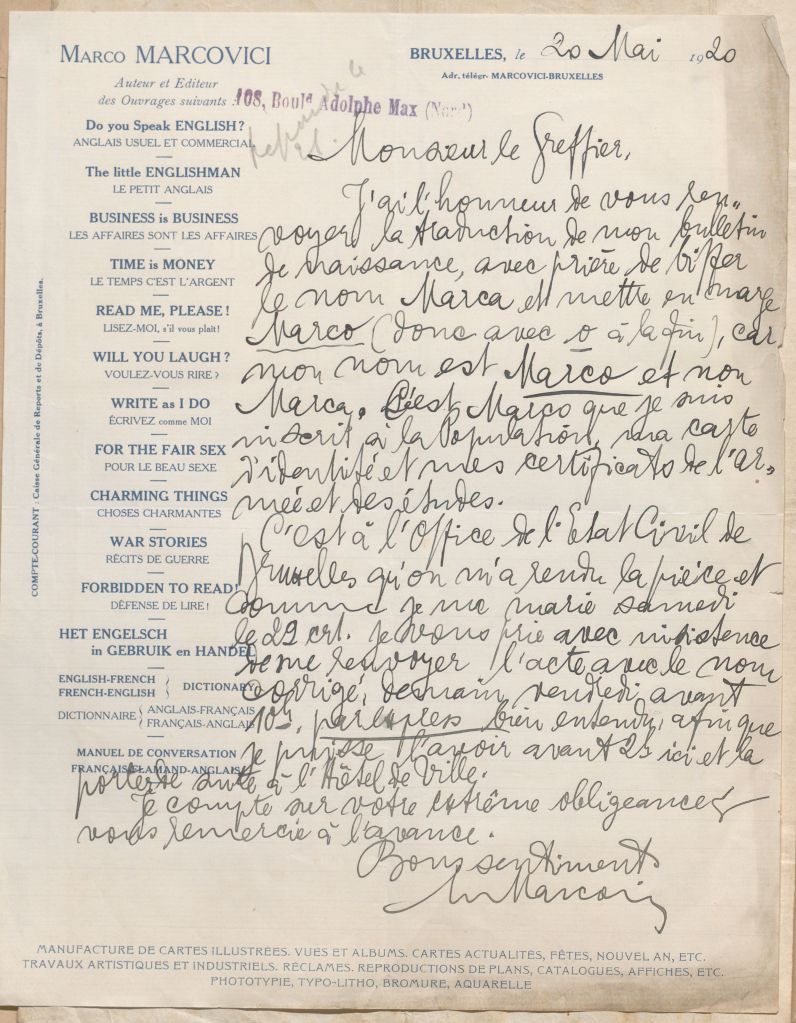 MARCO MARCOVICI
Auteur et Editeur
des Ouvrages suivants :
BRUXELLES, le 20 Mai 1920
Adr. télégr. MARCOVICI-BRUXELLES
108, Boulᵈ Adolphe Max (Nord)
Do you Speak ENGLISH?
ANGLAIS USUEL ET COMMERCIAL
The little ENGLISHMAN
LE PETIT ANGLAIS
BUSINESS is BUSINESS
LES AFFAIRES SONT LES AFFAIRES
TIME is MONEY
LE TEMPS C'EST L'ARGENT
READ ME, PLEASE!
LISEZ-MOI, s'il vous plait!
WILL YOU LAUGH?
VOULEZ-VOUS RIRE?
WRITE as I DO
ÉCRIVEZ comme MOI
FOR THE FAIR SEX
POUR LE BEAU SEXE
CHARMING THINGS
CHOSES CHARMANTES
WAR STORIES
RÉCITS DE GUERRE
FORBIDDEN TO READ!
DÉFENSE DE LIRE!
HET ENGELSCH
in GEBRUIK en HANDEL
ENGLISH-FRENCH
FRENCH-ENGLISH } DICTIONARY
DICTIONNAIRE { ANGLAIS-FRANÇAIS
FRANÇAIS-ANGLAIS
MANUEL DE CONVERSATION
FRANÇAIS-FLAMAND-ANGLAIS
COMPTE-COURANT : Caisse Générale de Reports et de Dépôts, à Bruxelles.
Monsieur le Greffier,
J'ai l'honneur de vous ren-
voyer la traduction de mon bulletin
de naissance, avec prière de biffer
le nom Marca et mettre en marge
Marco (donc avec o à la fin), car
mon nom est Marco et non
Marca. C'est Marco que je suis
inscrit à la Population, ma carte
d'identité et mes certificats de l'ar-
mée et des études.
C'est à l'Office de l'Etat Civil de
Bruxelles qu'on m'a rendu la pièce et
comme je me marie samedi
le 22 crt. je vous prie avec insistence
de me renvoyer l'acte avec le nom
corrigé, demain vendredi avant
10h, par express bien entendu, afin que
je puisse l'avoir avant 2h ici et la
porter de suite à l'Hôtel de Ville.
Je compte sur votre extrême obligeance &
vous remercie à l'avance.
Bons sentiments
M Marcovici
MANUFACTURE DE CARTES ILLUSTRÉES. VUES ET ALBUMS. CARTES ACTUALITÉS, FÊTES, NOUVEL AN, ETC.
TRAVAUX ARTISTIQUES ET INDUSTRIELS. RÉCLAMES. REPRODUCTIONS DE PLANS, CATALOGUES, AFFICHES, ETC.
PHOTOTYPIE, TYPO-LITHO, BROMURE, AQUARELLE